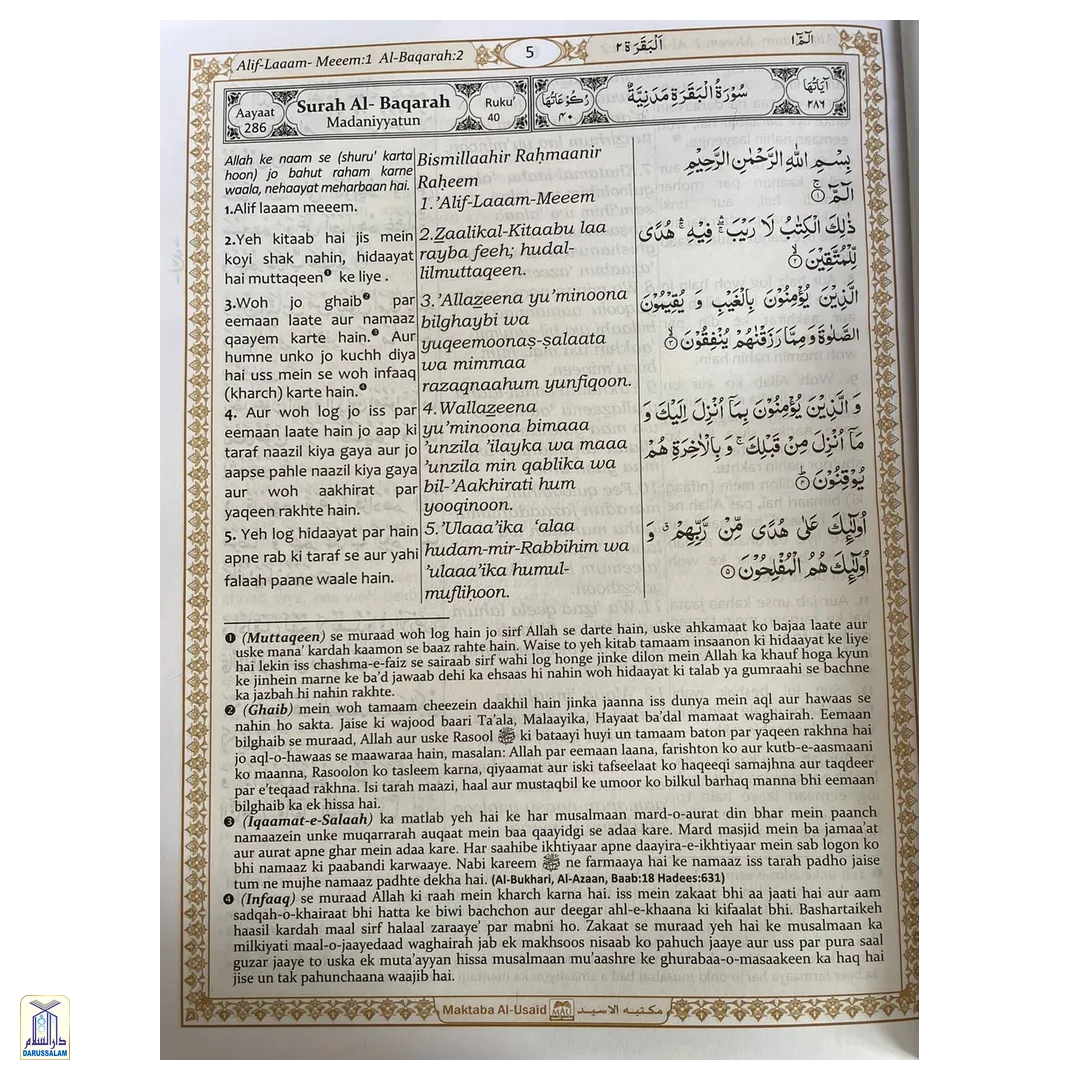 Alif-Laaam- Meeem:1 Al-Baqarah:2
5
اَلْبَقَرَة ٢
الٓمّٓ ١
Aayaat
286
Surah Al- Baqarah
Madaniyyatun
Ruku’
40
رُكُوْعَاتُهَا
٤٠
سُوْرَةُ الْبَقَرَةِ مَدَنِيَّةٌ
اٰيَاتُهَا
٢٨٦
Allah ke naam se (shuru' karta
hoon) jo bahut raham karne
waala, nehaayat meharbaan hai.
1.Alif laaam meeem.
2.Yeh kitaab hai jis mein
koyi shak nahin, hidaayat
hai muttaqeen❶ ke liye .
3.Woh jo ghaib❷ par
eemaan laate aur namaaz
qaayem karte hain.❸ Aur
humne unko jo kuchh diya
hai uss mein se woh infaaq
(kharch) karte hain.❹
4. Aur woh log jo iss par
eemaan laate hain jo aap ki
taraf naazil kiya gaya aur jo
aapse pahle naazil kiya gaya
aur woh aakhirat par
yaqeen rakhte hain.
5. Yeh log hidaayat par hain
apne rab ki taraf se aur yahi
falaah paane waale hain.
Bismillaahir Raḥmaanir
Raḥeem
1.’Alif-Laaam-Meeem
2.Zaalikal-Kitaabu laa
rayba feeh; hudal-
lilmuttaqeen.
3.’Allazeena yu’minoona
bilghaybi wa
yuqeemoonaṣ-ṣalaata
wa mimmaa
razaqnaahum yunfiqoon.
4.Wallazeena
yu’minoona bimaaa
’unzila ’ilayka wa maaa
’unzila min qablika wa
bil-’Aakhirati hum
yooqinoon.
5.’Ulaaa’ika ‘alaa
hudam-mir-Rabbihim wa
’ulaaa’ika humul-
mufliḥoon.
بِسْمِ اللّٰهِ الرَّحْمٰنِ الرَّحِيْمِ
الٓمّٓ ۚ ١
ذٰلِكَ الْكِتٰبُ لَا رَيْبَ ۛ فِيْهِ ۛ هُدًى
لِّلْمُتَّقِيْنَ ۙ ٢
الَّذِيْنَ يُؤْمِنُوْنَ بِالْغَيْبِ وَ يُقِيْمُوْنَ
الصَّلٰوةَ وَ مِمَّا رَزَقْنٰهُمْ يُنْفِقُوْنَ ۙ ٣
وَ الَّذِيْنَ يُؤْمِنُوْنَ بِمَاۤ اُنْزِلَ اِلَيْكَ وَ
مَاۤ اُنْزِلَ مِنْ قَبْلِكَ ۚ وَ بِالْاٰخِرَةِ هُمْ
يُوْقِنُوْنَ ؕ ٤
اُولٰٓئِكَ عَلٰى هُدًى مِّنْ رَّبِّهِمْ ۗ وَ
اُولٰٓئِكَ هُمُ الْمُفْلِحُوْنَ ٥
❶ (Muttaqeen) se muraad woh log hain jo sirf Allah se darte hain, uske ahkamaat ko bajaa laate aur
uske mana’ kardah kaamon se baaz rahte hain. Waise to yeh kitab tamaam insaanon ki hidaayat ke liye
hai lekin iss chashma-e-faiz se sairaab sirf wahi log honge jinke dilon mein Allah ka khauf hoga kyun
ke jinhein marne ke ba’d jawaab dehi ka ehsaas hi nahin woh hidaayat ki talab ya gumraahi se bachne
ka jazbah hi nahin rakhte.
❷ (Ghaib) mein woh tamaam cheezein daakhil hain jinka jaanna iss dunya mein aql aur hawaas se
nahin ho sakta. Jaise ki wajood baari Ta’ala, Malaayika, Hayaat ba’dal mamaat waghairah. Eemaan
bilghaib se muraad, Allah aur uske Rasool ﷺ ki bataayi huyi un tamaam baton par yaqeen rakhna hai
jo aql-o-hawaas se maawaraa hain, masalan: Allah par eemaan laana, farishton ko aur kutb-e-aasmaani
ko maanna, Rasoolon ko tasleem karna, qiyaamat aur iski tafseelaat ko haqeeqi samajhna aur taqdeer
par e’teqaad rakhna. Isi tarah maazi, haal aur mustaqbil ke umoor ko bilkul barhaq manna bhi eemaan
bilghaib ka ek hissa hai.
❸ (Iqaamat-e-Salaah) ka matlab yeh hai ke har musalmaan mard-o-aurat din bhar mein paanch
namaazein unke muqarrarah auqaat mein baa qaayidgi se adaa kare. Mard masjid mein ba jamaa’at
aur aurat apne ghar mein adaa kare. Har saahibe ikhtiyaar apne daayira-e-ikhtiyaar mein sab logon ko
bhi namaaz ki paabandi karwaaye. Nabi kareem ﷺ ne farmaaya hai ke namaaz iss tarah padho jaise
tum ne mujhe namaaz padhte dekha hai. (Al-Bukhari, Al-Azaan, Baab:18 Hadees:631)
❹ (Infaaq) se muraad Allah ki raah mein kharch karna hai. iss mein zakaat bhi aa jaati hai aur aam
sadqah-o-khairaat bhi hatta ke biwi bachchon aur deegar ahl-e-khaana ki kifaalat bhi. Bashartaikeh
haasil kardah maal sirf halaal zaraaye’ par mabni ho. Zakaat se muraad yeh hai ke musalmaan ka
milkiyati maal-o-jaayedaad waghairah jab ek makhsoos nisaab ko pahuch jaaye aur uss par pura saal
guzar jaaye to uska ek muta’ayyan hissa musalmaan mu’aashre ke ghurabaa-o-masaakeen ka haq hai
jise un tak pahunchaana waajib hai.
Maktaba Al-Usaid
MAU
مكتبه الاسيد
دارالسلام
DARUSSALAM